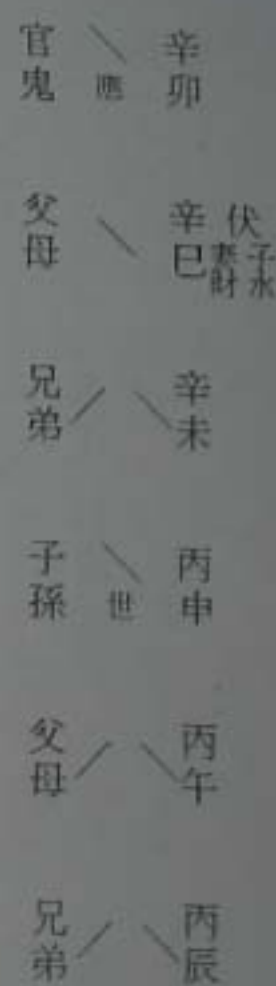 官鬼 應 辛卯
父母 辛巳 伏 妻財 子水
兄弟 辛未
子孫 世 丙申
父母 丙午
兄弟 丙辰